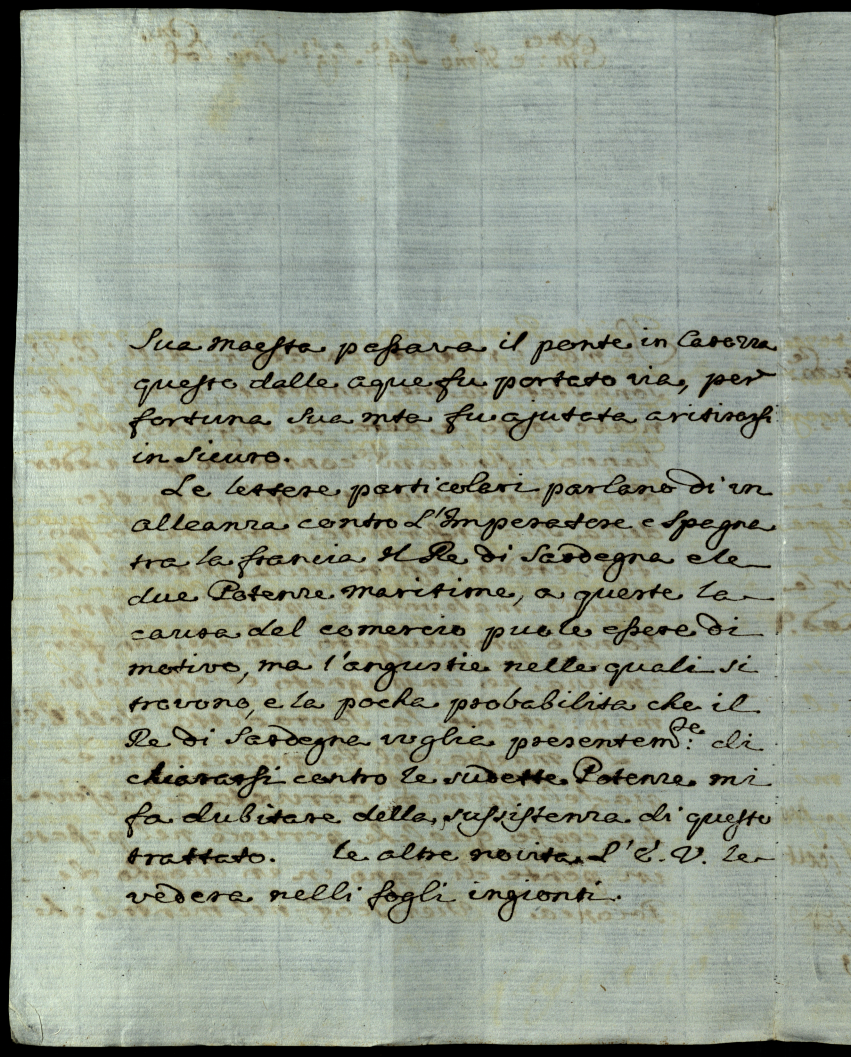 Sua maesta passava il ponte in Carozza
questo dalle aque fu portato via, per
fortuna sua mta fu ajutata a ritirarsi
in sicuro.
Le lettere particolari parlano di un
alleanza contro L'Imperatore e Spagna
tra la francia il Re di Sardegna e le
due Potenze maritime, a queste la
causa del comercio puole essere di
motivo, ma l'angustie nelle quali si
trovono, e la pocha probabilita che il
Re di Sardegna voglia presentem:te di
chiararsi contro le sudette Potenze mi
fa dubitare della sussistenza di questo
trattato. le altre novita L'E. V. le
vedera nelli fogli ingionti.